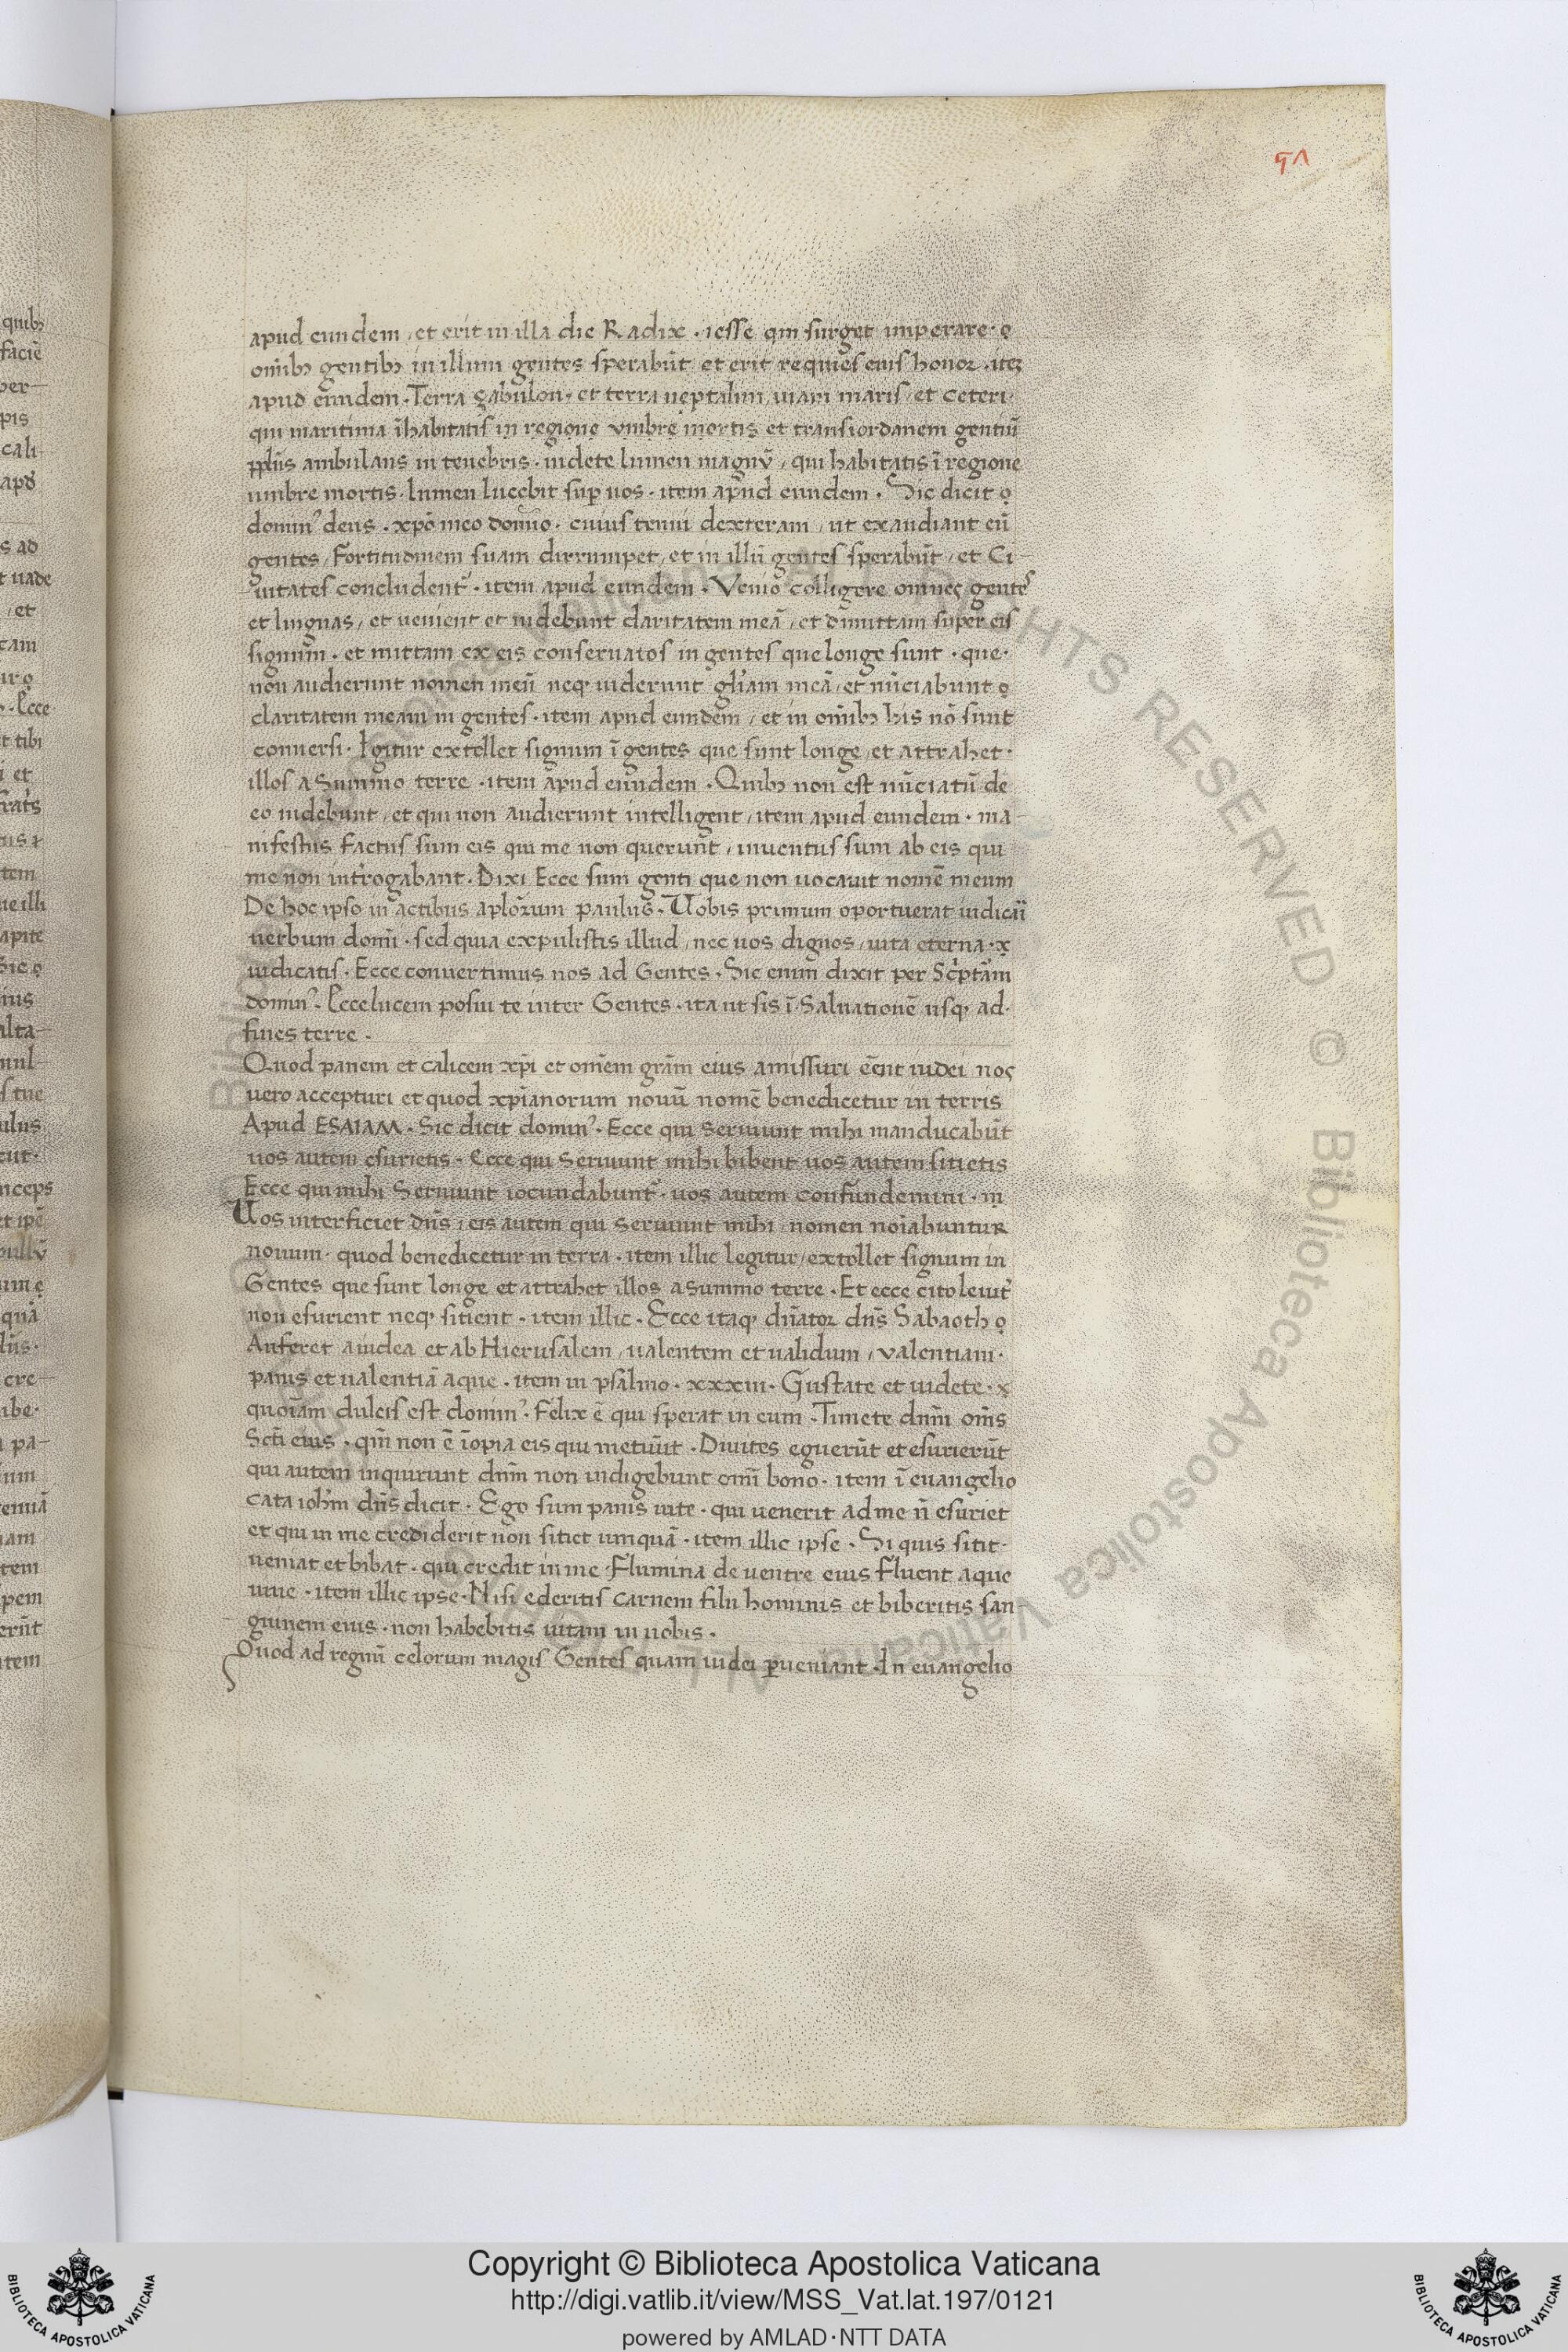 51
apud eundem, et erit in illa die Radix · iesse qui surget imperare ·
om̄ibꝫ gentibꝫ in illum gentes sperabūt et erit requies eius honoꝛ · iteꝫ
apud eundem · Terra zabulon · et terra neptalim, uiam maris, et ceteri ·
qui maritima īhabitatis in regione vmbrę mortis et transiordanem gentiū
pplūs ambulans in tenebris · uidete lumen magnū, qui habitatis ī regione
umbre mortis · lumen lucebit suꝑ uos · item apud eundem · Sic dicit
domin᾿ deus · xp̄o meo domino · cuius tenui dexteram, ut exaudiant eū
gentes, Fortitudinem suam dirrumpet, et in illū gentes sperabūt, et Ci-
uitates concludent᾿ · item apud eundem · Venio colligere omnes gentes
et linguas, et uenient et uidebunt claritatem meā, et dimittam super eis
signum · et mittam ex eis conseruatos in gentes que longe sunt · que ·
non audierunt nomen meū neqꝫ uiderunt gl᾿iam meā, et nūciabunt
claritatem meam in gentes · item apud eundem, et in om̄ibꝫ his nō sunt
conuersi · Igitur extollet signum ī gentes que sunt longe, et attrahet ·
illos a Summo terre · item apud eundem · Quibꝫ non est nūciatū de
eo uidebunt, et qui non audierunt intelligent, item apud eundem · ma-
nifestus factus sum eis qui me non querunt, inuentus sum ab eis qui
me non int᾿rogabant · Dixi Ecce sum genti que non uocauit nomē meum
De hoc ipso in actibus ap̄loꝛum paulus · Uobis primum oportuerat iudicii
uerbum domi · sed quia expulistis illud, nec uos dignos, uita eterna ·
iudicatis · Ecce conuertimus nos ad Gentes · Sic enim dixit per Sc᾿pt᾿am
domin᾿ · Ecce lucem posui te inter Gentes · ita ut sis ī Saluationē usqꝫ ad ·
fines terre ·
Quod panem et calicem xp̄i et om̄em grām eius amissuri ēent iudei nos
uero accepturi et quod xp̄ianorum nouū nomē benedicetur in terris
Apud ESAIAM · Sic dicit domin᾿ · Ecce qui Seruiunt mihi manducabūt
uos autem esurietis · Ecce qui Seruiunt mihi bibent uos autem sitietis
Ecce qui mihi Seruiunt iocundabunt᾿ · uos autem confundemini ·
Uos interficiet dn̄s, eis autem qui Seruiunt mihi, nomen noīabuntur
nouum · quod benedicetur in terra · item illic legitur, extollet signum in
Gentes que sunt longe et attrahet illos a summo terre · Et ecce cito leuit᾿
non esurient neqꝫ sitient · item illic · Ecce itaqꝫ dn̄atoꝛ dn̄s Sabaoth
Auferet a iudea et ab Hierusalem, ualentem et ualidum, valentiam ·
panis et ualentiā aque · item in psalmo · xxxiii · Gustate et uidete ·
quoīam dulcis est domin᾿ · Felix ē qui sperat in eum · Timete dn̄m om̄s
Sc̄ti eius · qm̄ non ē īopia eis qui metuūt · Diuites eguerūt et esurierūt
qui autem inquirunt dn̄m non indigebunt om̄i bono · item ī euangelio
cata ioh̄m dn̄s dicit · Ego sum panis uite · qui uenerit ad me n̄ esuriet
et qui in me crediderit non sitiet umquā · item illic ipse · Si quis sitit ·
ueniat et bibat · qui credit in me Flumina de uentre eius Fluent aque
uiue · item illic ipse · Nisi ederitis Carnem filii hominis et biberitis san-
guinem eius · non habebitis uitam in uobis ·
Quod ad regnū celorum magis Gentes quam iudei ꝑueniant · In euangelio
Copyright © Biblioteca Apostolica Vaticana
http://digi.vatlib.it/view/MSS_Vat.lat.197/0121
powered by AMLAD·NTT DATA